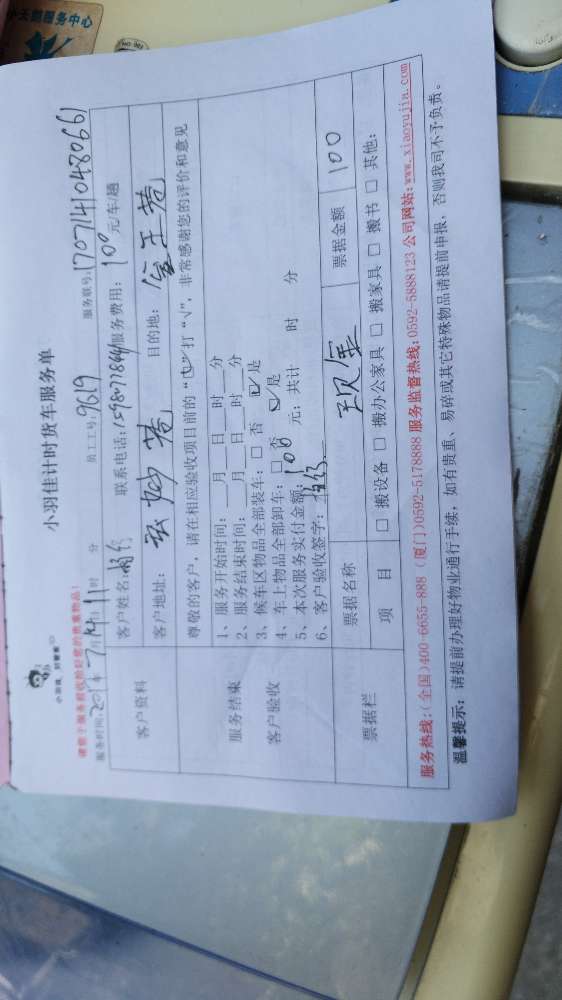 小天鹅服务中心
小羽佳计时货车服务单
小羽佳，好管家
请您于服务前收拾好您的贵重物品！
服务时间：201 年 7 月 14 日 11 时 分 员工工号：9619 服务联号：17071410480661
客户资料
客户姓名： 联系电话： 服务费用：100 元/车/趟
客户地址： 目的地：
尊敬的客户，请在相应验收项目前的“□”打“√”，非常感谢您的评价和意见
服务结束
客户验收
1、服务开始时间：__月__日__时__分
2、服务结束时间：__月__日__时__分
3、候车区物品全部装车：□ 否 ☑ 是
4、车上物品全部卸车：□ 否 ☑ 是
5、本次服务实付金额：100 元；共计 时 分
6、客户验收签字：
票据栏
票据名称 现金 票据金额 100
项 目 □ 搬设备 □ 搬办公家具 □ 搬家具 □ 搬书 □ 其他：
服务热线：(全国)400-6655-888 (厦门)0592-5178888 服务监督热线：0592-5888123 公司网站：www.xiaoyujia.com
温馨提示：请提前办理好物业通行手续，如有贵重、易碎或其它特殊物品请提前申报，否则我司不予负责。